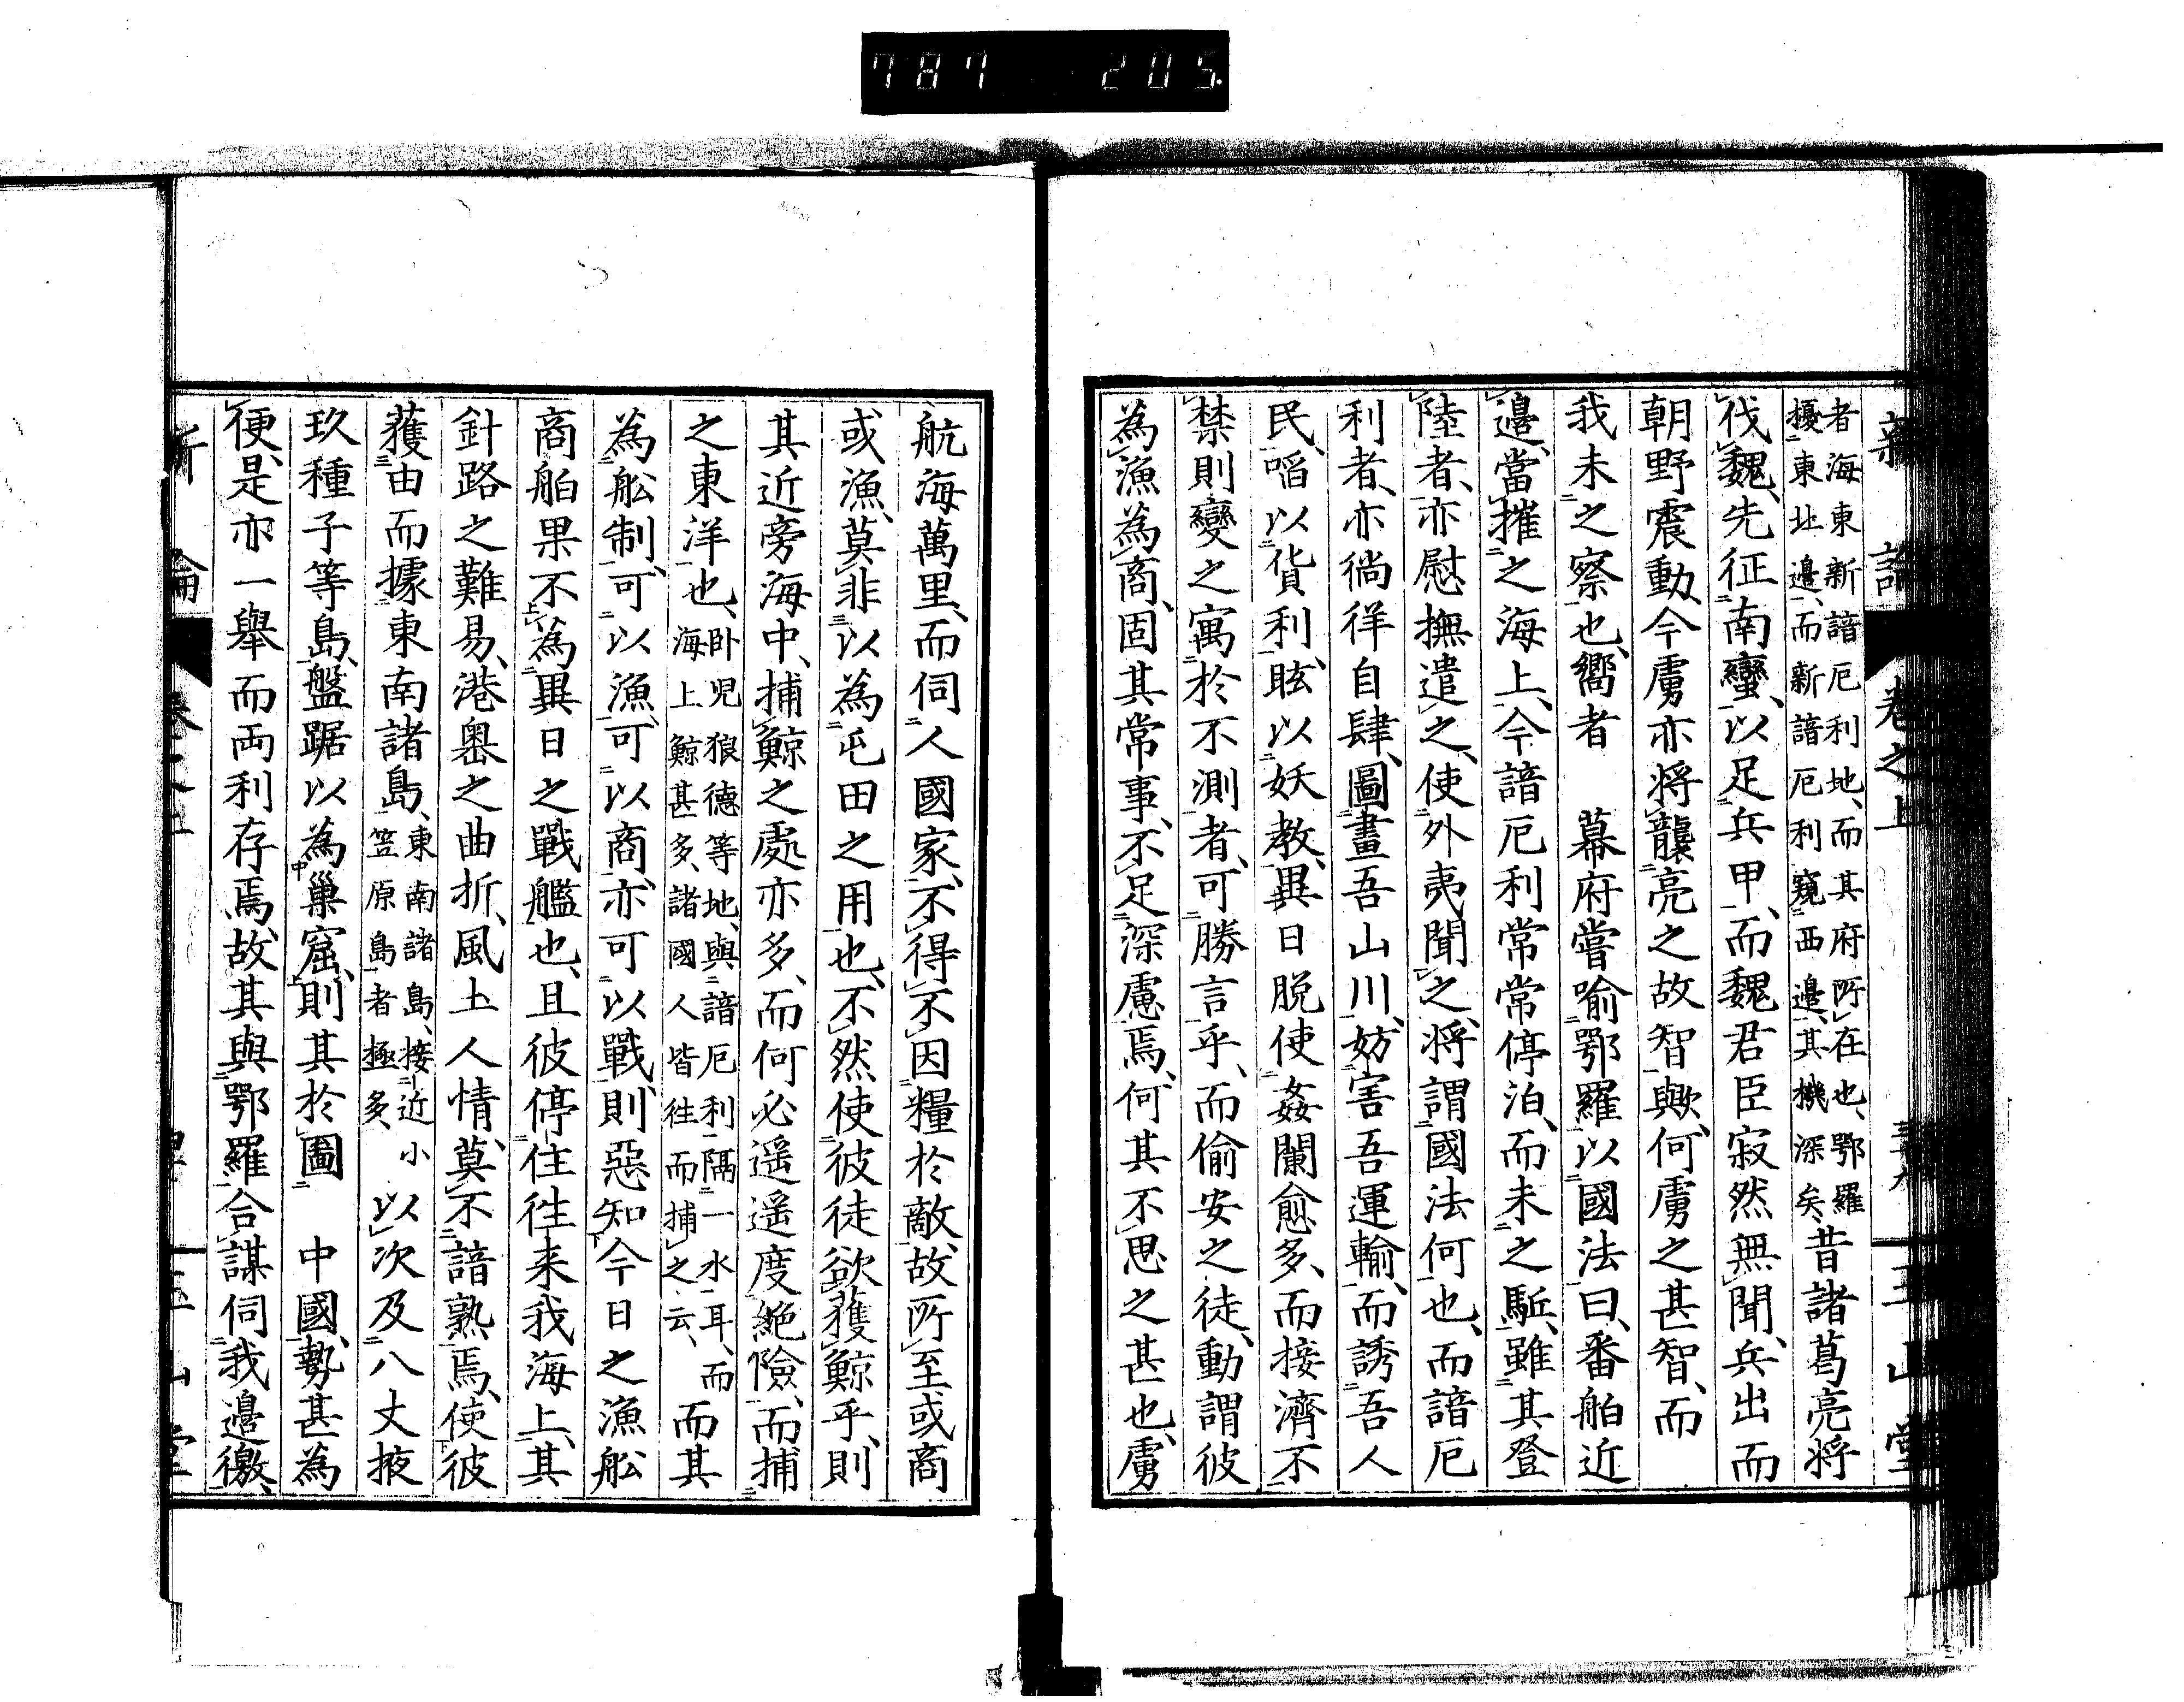 787 205
新論 卷之上 玉山堂
者海東新諳厄利地、而其府所在也、鄂羅
擾東北邊、而新諳厄利窺西邊、其機深矣、昔諸葛亮將
伐魏、先征南蠻、以足兵甲、而魏君臣寂然無聞、兵出而
朝野震動、今虜亦將襲亮之故智歟、何虜之甚智、而
我未之察也、嚮者 幕府嘗喻鄂羅以國法曰、番舶近
邊、當摧之海上、今諳厄利常常停泊、而未之駈、雖其登
陸者、亦慰撫遣之、使外夷聞之、將謂國法何也、而諳厄
利者、亦徜徉自肆、圖畫吾山川、妨害吾運輸、而誘吾人
民、啗以貨利、眩以妖教、異日脫使姦闌愈多、而接濟不
禁、則變之寓於不測者、可勝言乎、而偷安之徒、動謂彼
為漁為商、固其常事、不足深慮焉、何其不思之甚也、虜
航海萬里、而伺人國家、不得不因糧於敵、故所至或商
或漁、莫非以為屯田之用也、不然使彼徒欲獲鯨乎、則
其近旁海中、捕鯨之處亦多、而何必遥遥度絶險、而捕
之東洋也、臥児狼德等地、與諳厄利隔一水耳、而
海上鯨甚多、諸國人皆往而捕之云、而其
為舩制、可以漁、可以商、亦可以戰、則惡知今日之漁舩
商舶果不為異日之戰艦也、且彼停住往来我海上、其
針路之難易、港嶴之曲折、風土人情、莫不諳熟焉、使彼
獲由而據東南諸島、東南諸島、接近小
笠原島者極多、以次及八丈掖
玖種子等島、盤踞以為巢窟、則其於圖 中國、勢甚為
便、是亦一舉而両利存焉、故其與鄂羅合謀伺我邊徼、
新論